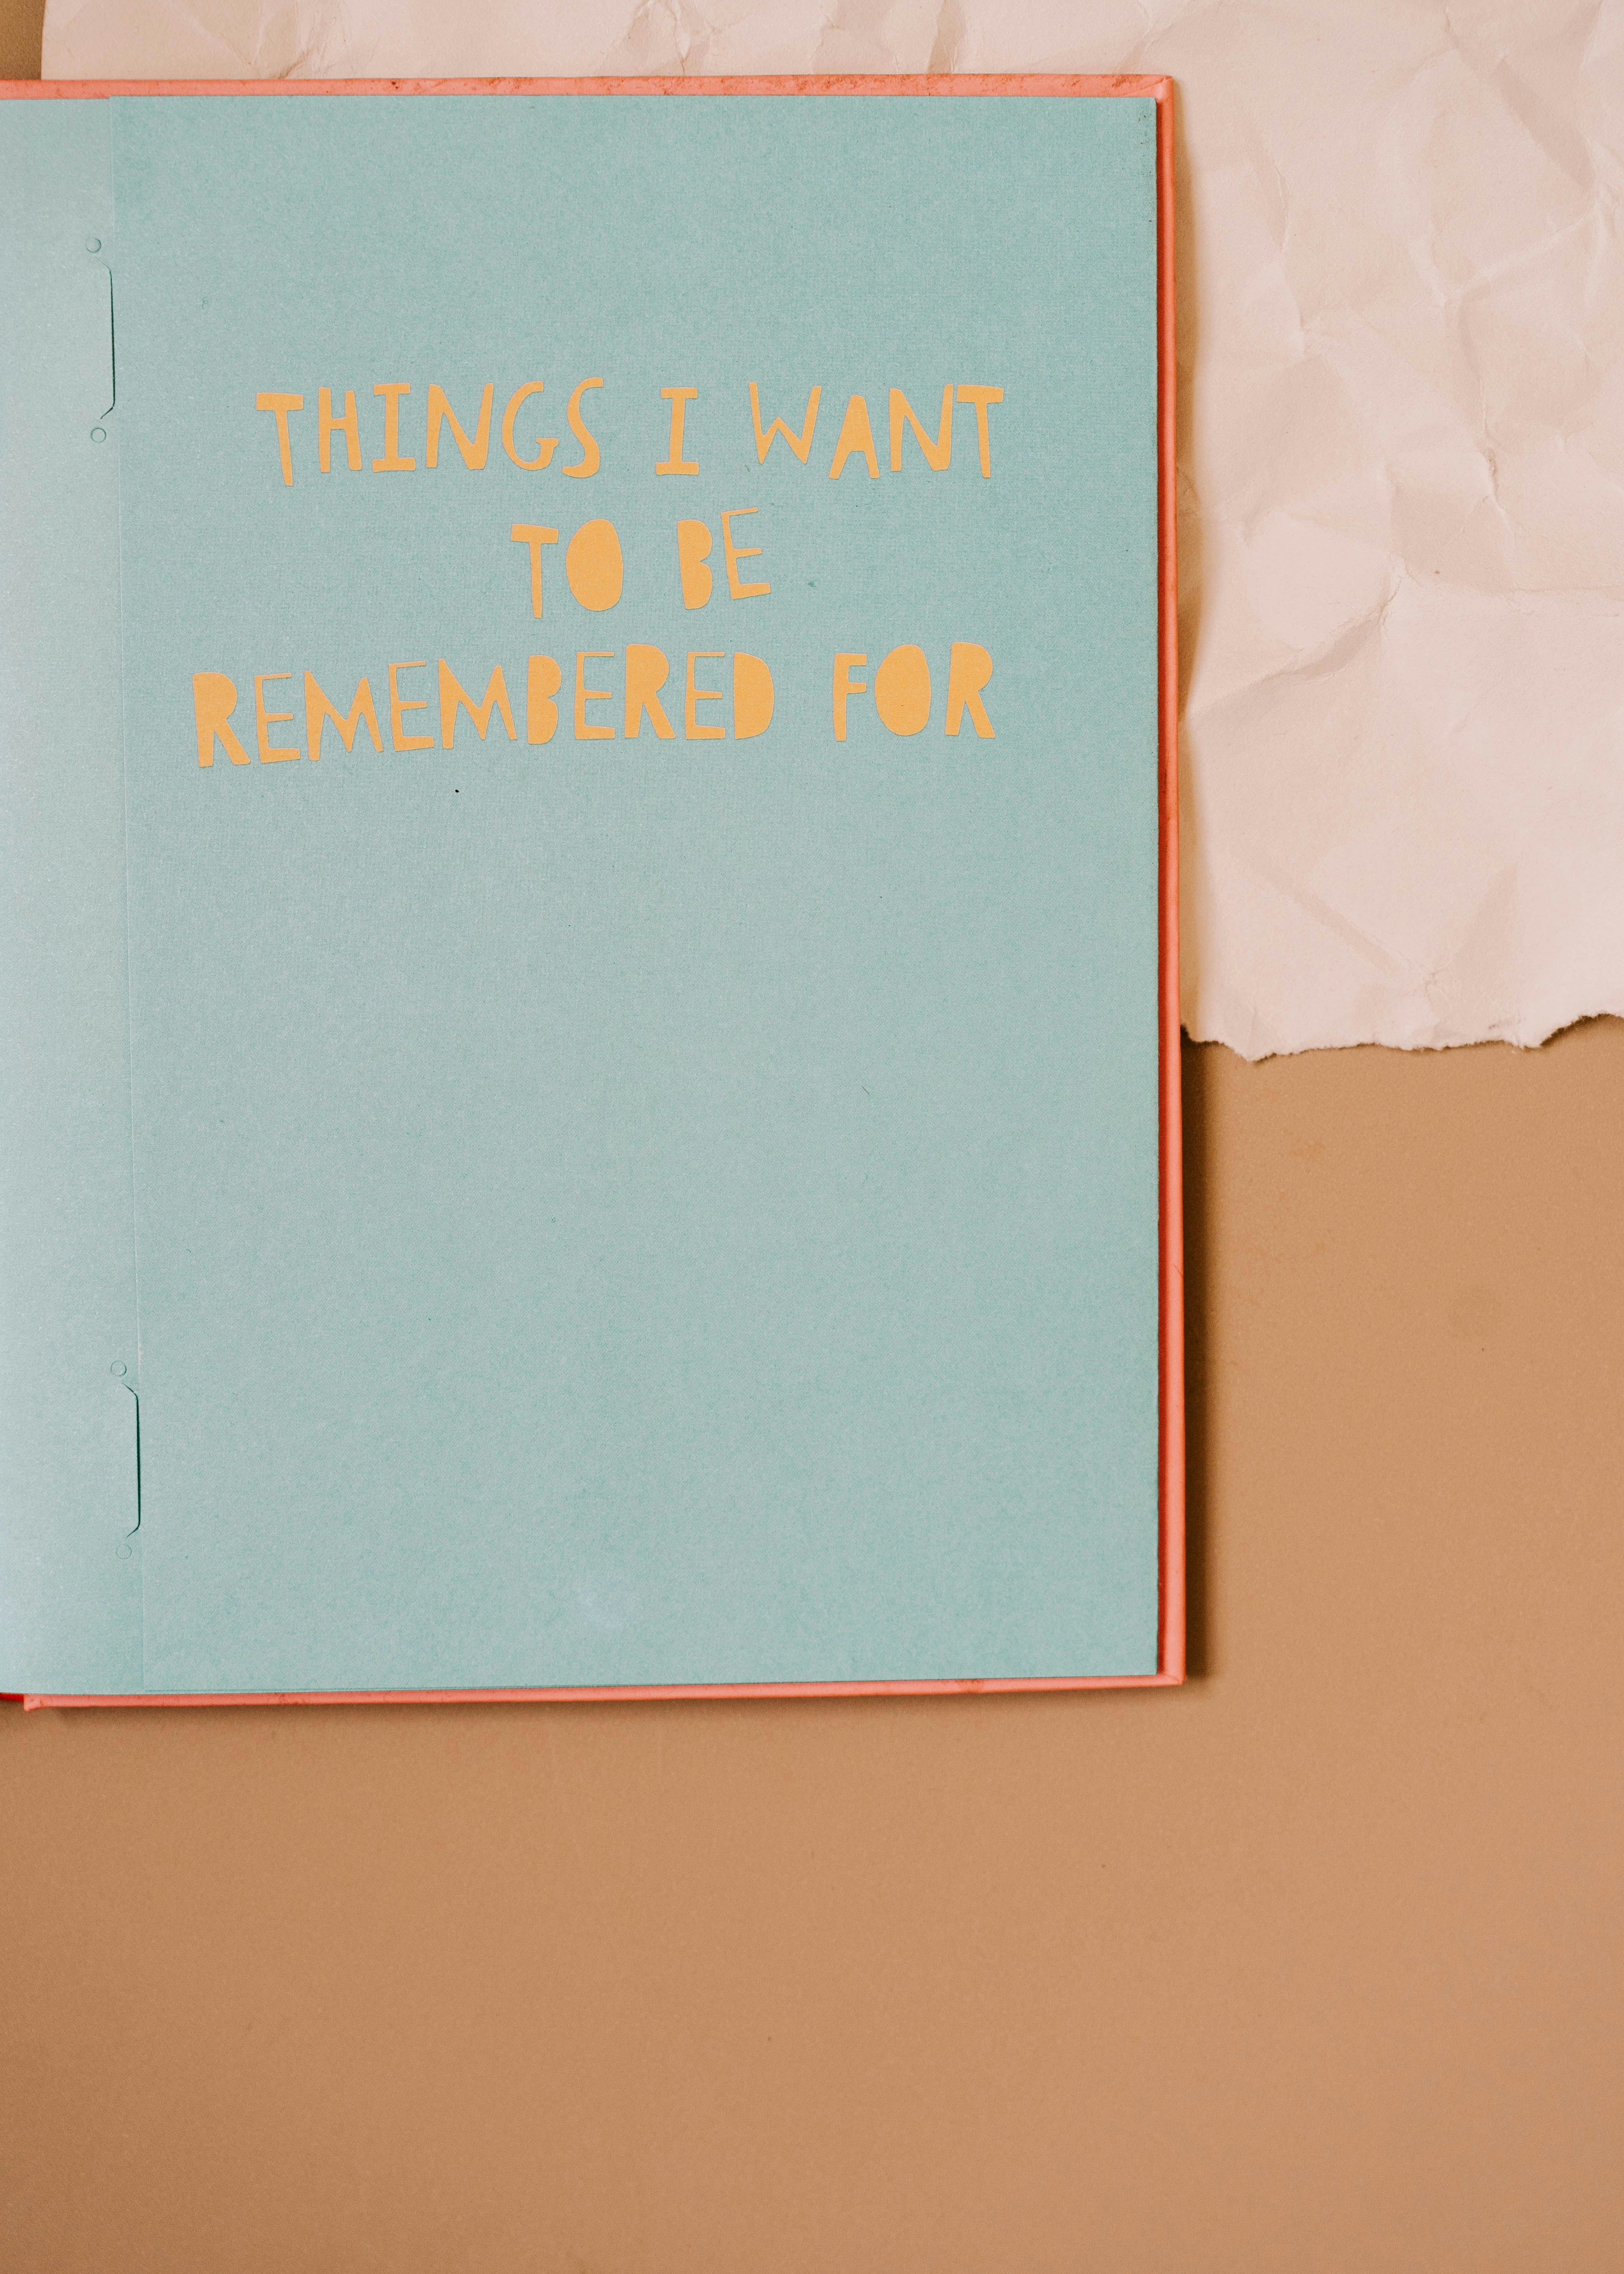 THINGS I WANT
TO BE
REMEMBERED FOR